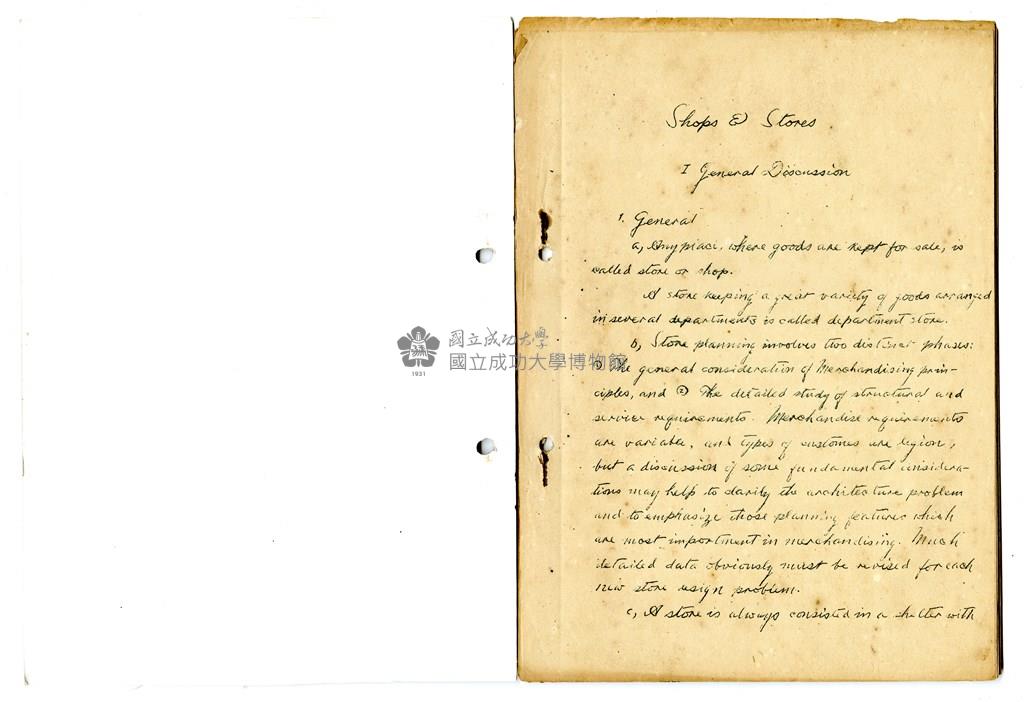 Shops & Stores
I General Discussion
1. General
a, Any place, where goods are kept for sale, is
called store or shop.
A store keeping a great variety of goods arranged
in several departments is called department store.
b, Store planning involves two distinct phases:
① The general consideration of Merchandising prin-
ciples, and ② The detailed study of structural and
service requirements. Merchandise requirements
are variable, and types of customes are legion,
but a discussion of some fundamental considera-
tions may help to clarify the architecture problem
and to emphasize those planning features which
are most important in merchandising. Much
detailed data obviously must be revised for each
new store design problem.
c, A store is always consisted in a shelter with
1931
國立成功大學
國立成功大學博物館